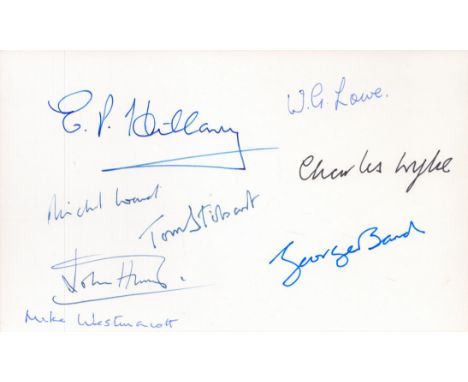 E. P. Hillary
W. G. Lowe.
Charles Wylie
Michl Ward
Tom Stobart
George Band
John Hunt
Mike Westmacott